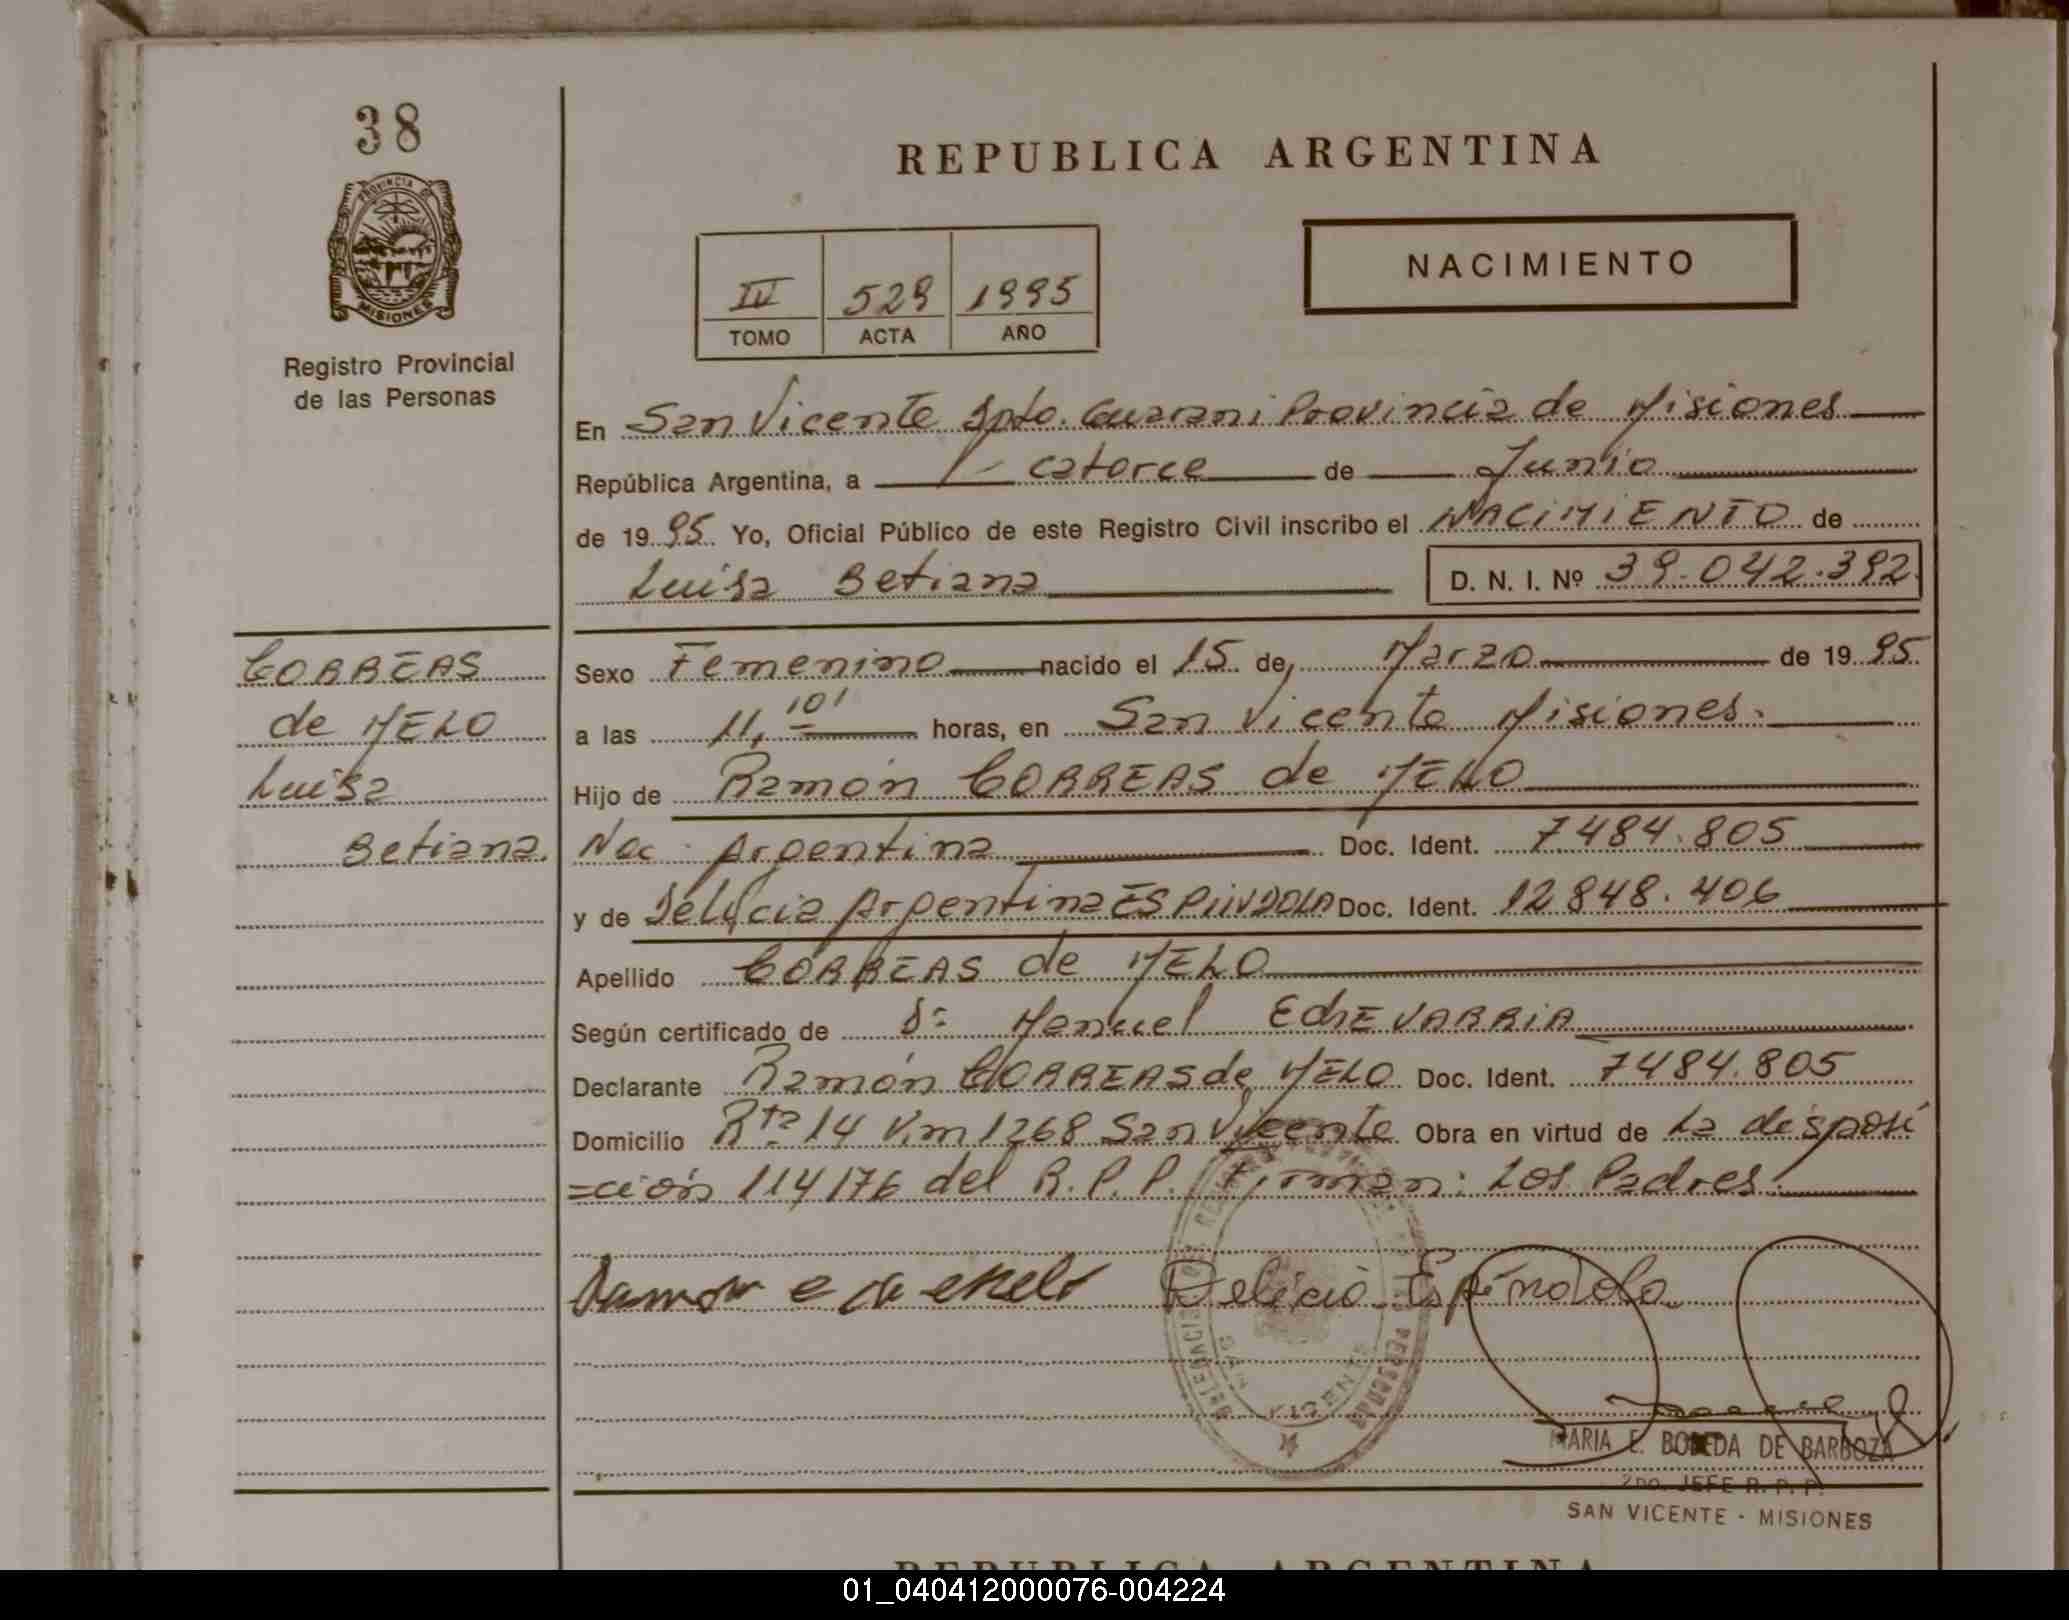 38
PROVINCIA DE
MISIONES
Registro Provincial
de las Personas
REPUBLICA ARGENTINA
NACIMIENTO
IV 529 1995
TOMO ACTA AÑO
En San Vicente Dpto. Guarani Provincia de Misiones
República Argentina, a catorce de Junio
de 1995 Yo, Oficial Público de este Registro Civil inscribo el NACIMIENTO de
Luisa Betiana D. N. I. Nº 39.042.392
CORREAS
de MELO
Luisa
Betiana.
Sexo Femenino nacido el 15 de Marzo de 1995
a las 11,10' horas, en San Vicente Misiones.
Hijo de Ramón CORREAS de MELO
Nac. Argentina Doc. Ident. 7484.805
y de Delicia Argentina ESPINDOLA Doc. Ident. 12848.406
Apellido CORREAS de MELO
Según certificado de Dr Manuel EchEVARRIA
Declarante Ramón CORREAS de MELO Doc. Ident. 7484.805
Domicilio Rta 14 Km 1268 San Vicente Obra en virtud de la disposi
=ción 114/76 del R.P.P. Firman: Los Padres.
Delicia Espíndola
SAN VICENTE
MARIA E. BOVEDA DE BARBOZA
2do. JEFE R. P. P.
SAN VICENTE - MISIONES
REPUBLICA ARGENTINA
01_040412000076-004224